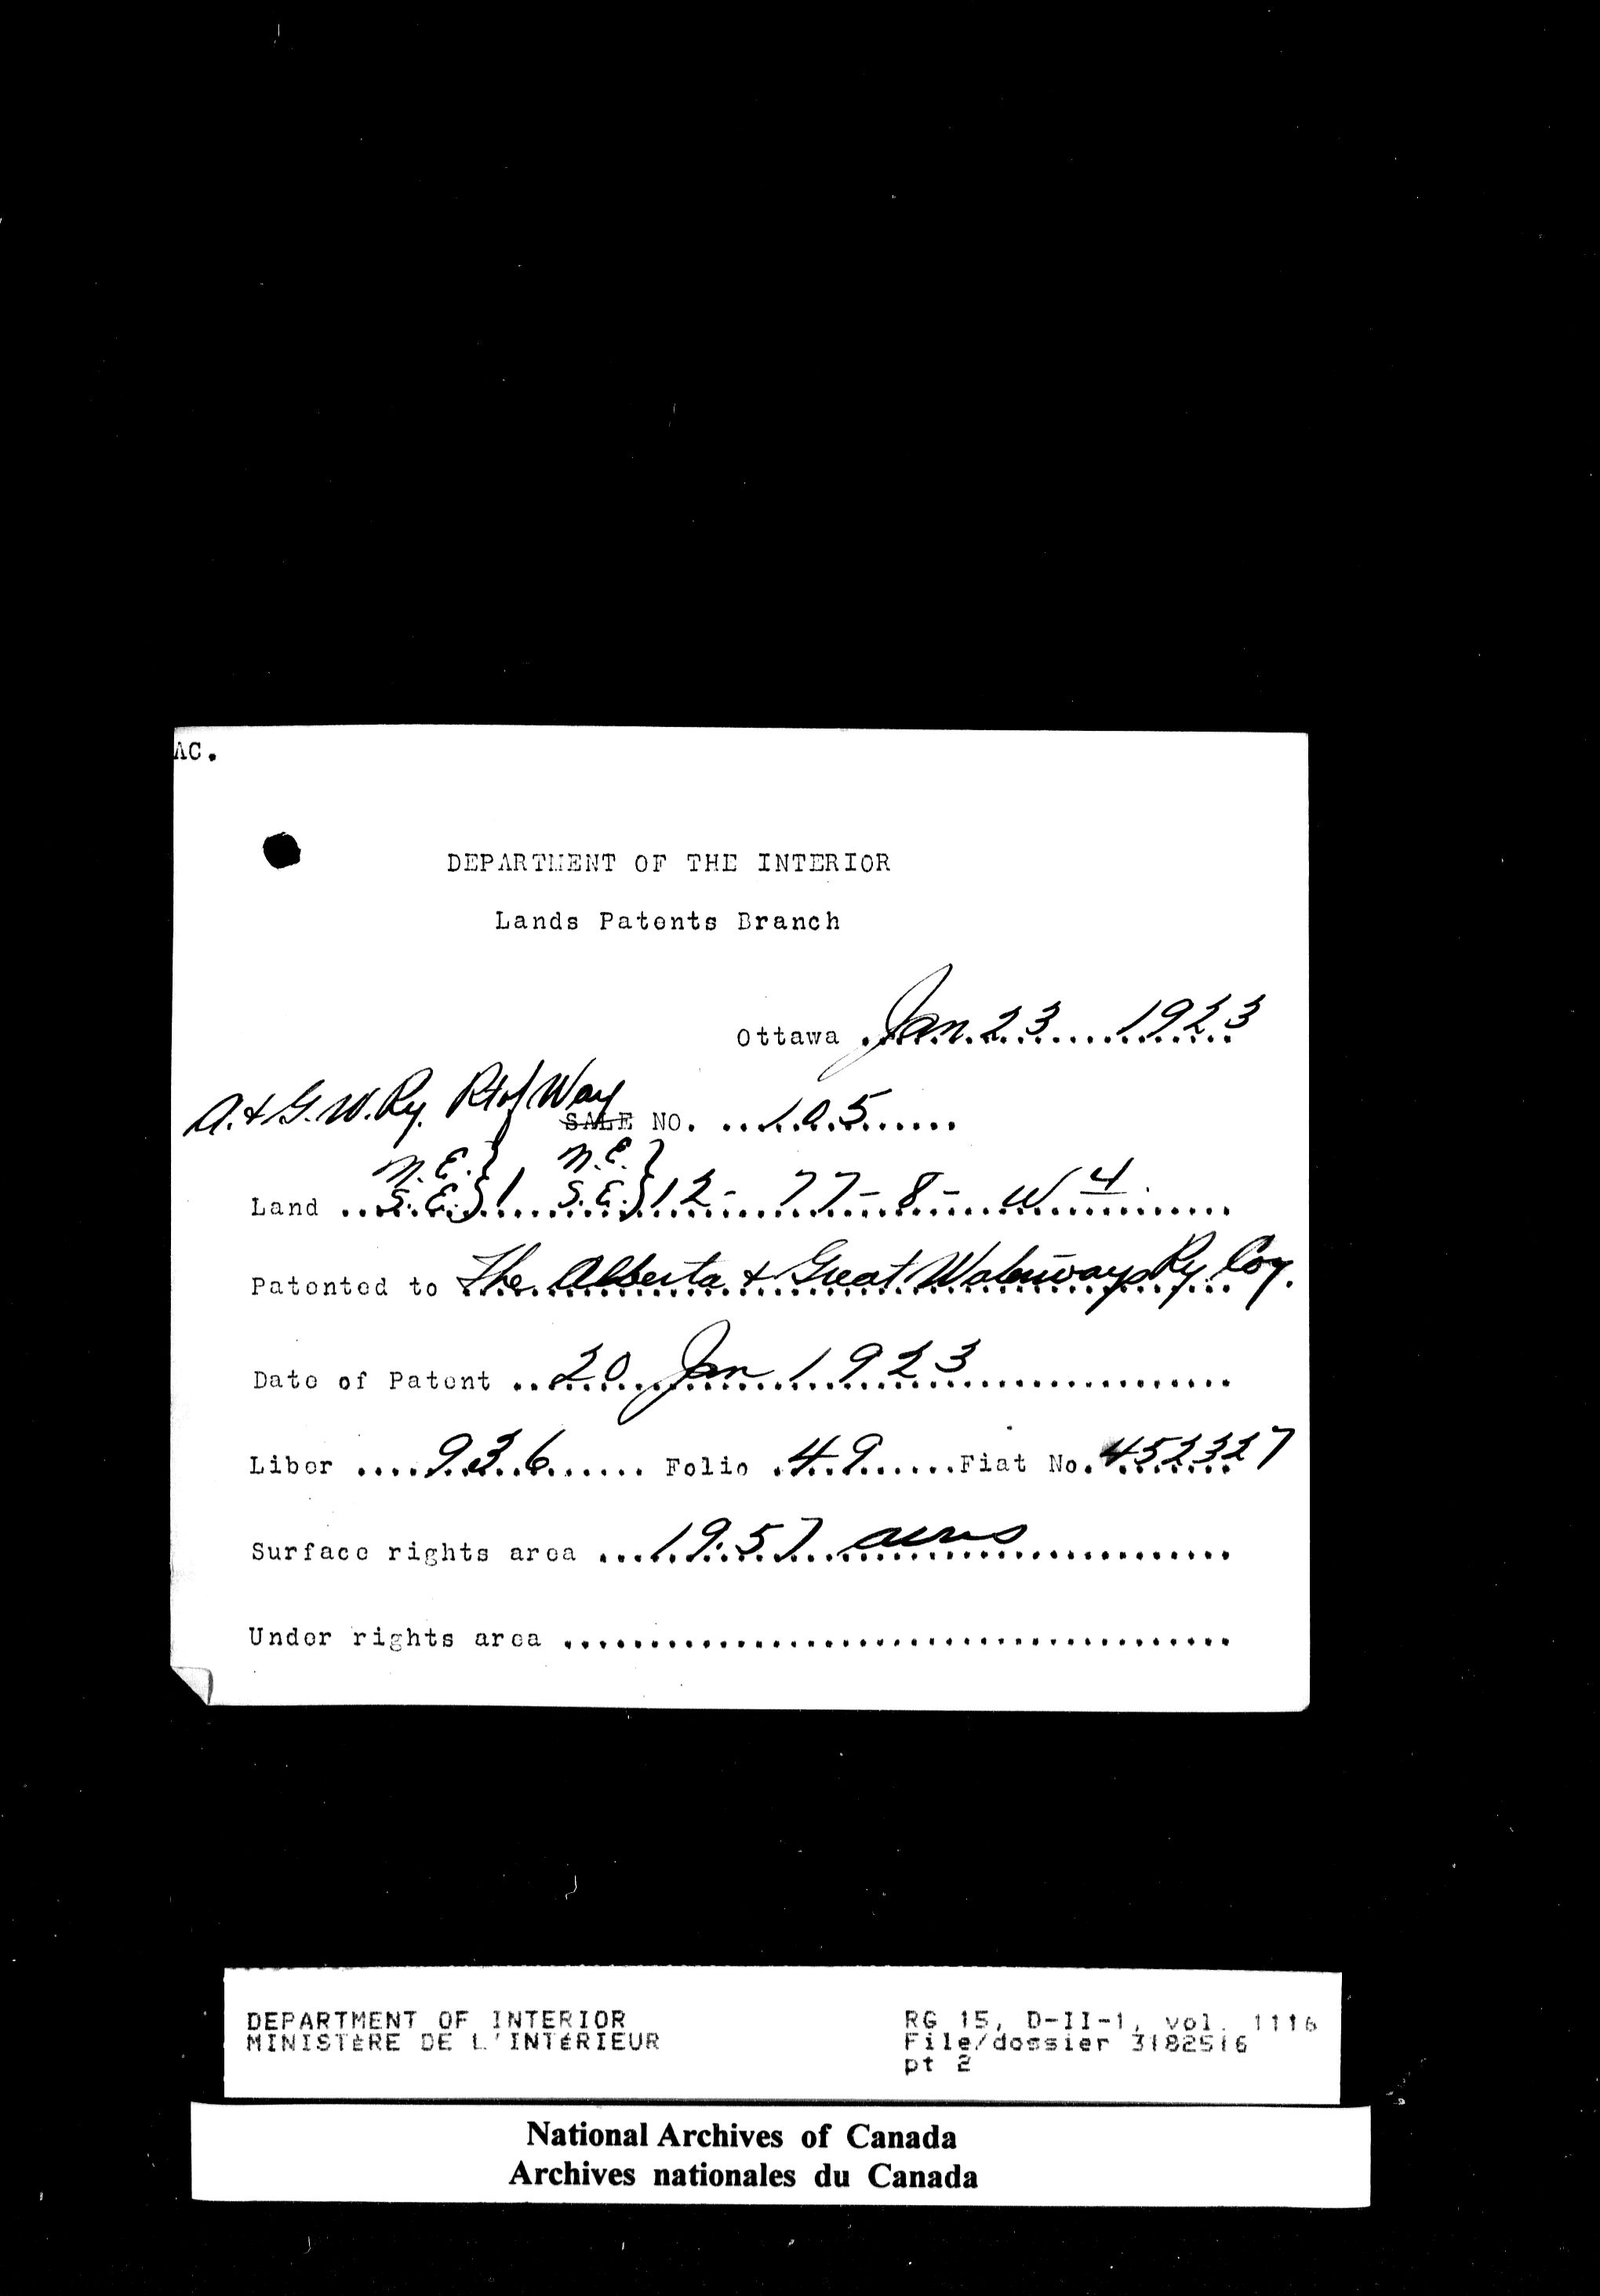 AC.
DEPARTMENT OF THE INTERIOR
Lands Patents Branch
Ottawa Jan. 23 1923
A. & G. W. Ry. Rt of Way SALE NO. 105
N.E.} N.E.}
Land S.E.} 1 S.E.} 12 - 77 - 8 - W 4
Patented to The Alberta & Great Waterways Ry Coy.
Date of Patent 20 Jan 1923
Liber 936 Folio 49 Fiat No. 452327
Surface rights area 19.57 acres
Under rights area
DEPARTMENT OF INTERIOR RG 15, D-II-1, vol. 1116
MINISTÈRE DE L'INTÉRIEUR File/dossier 3182516
pt 2
National Archives of Canada
Archives nationales du Canada